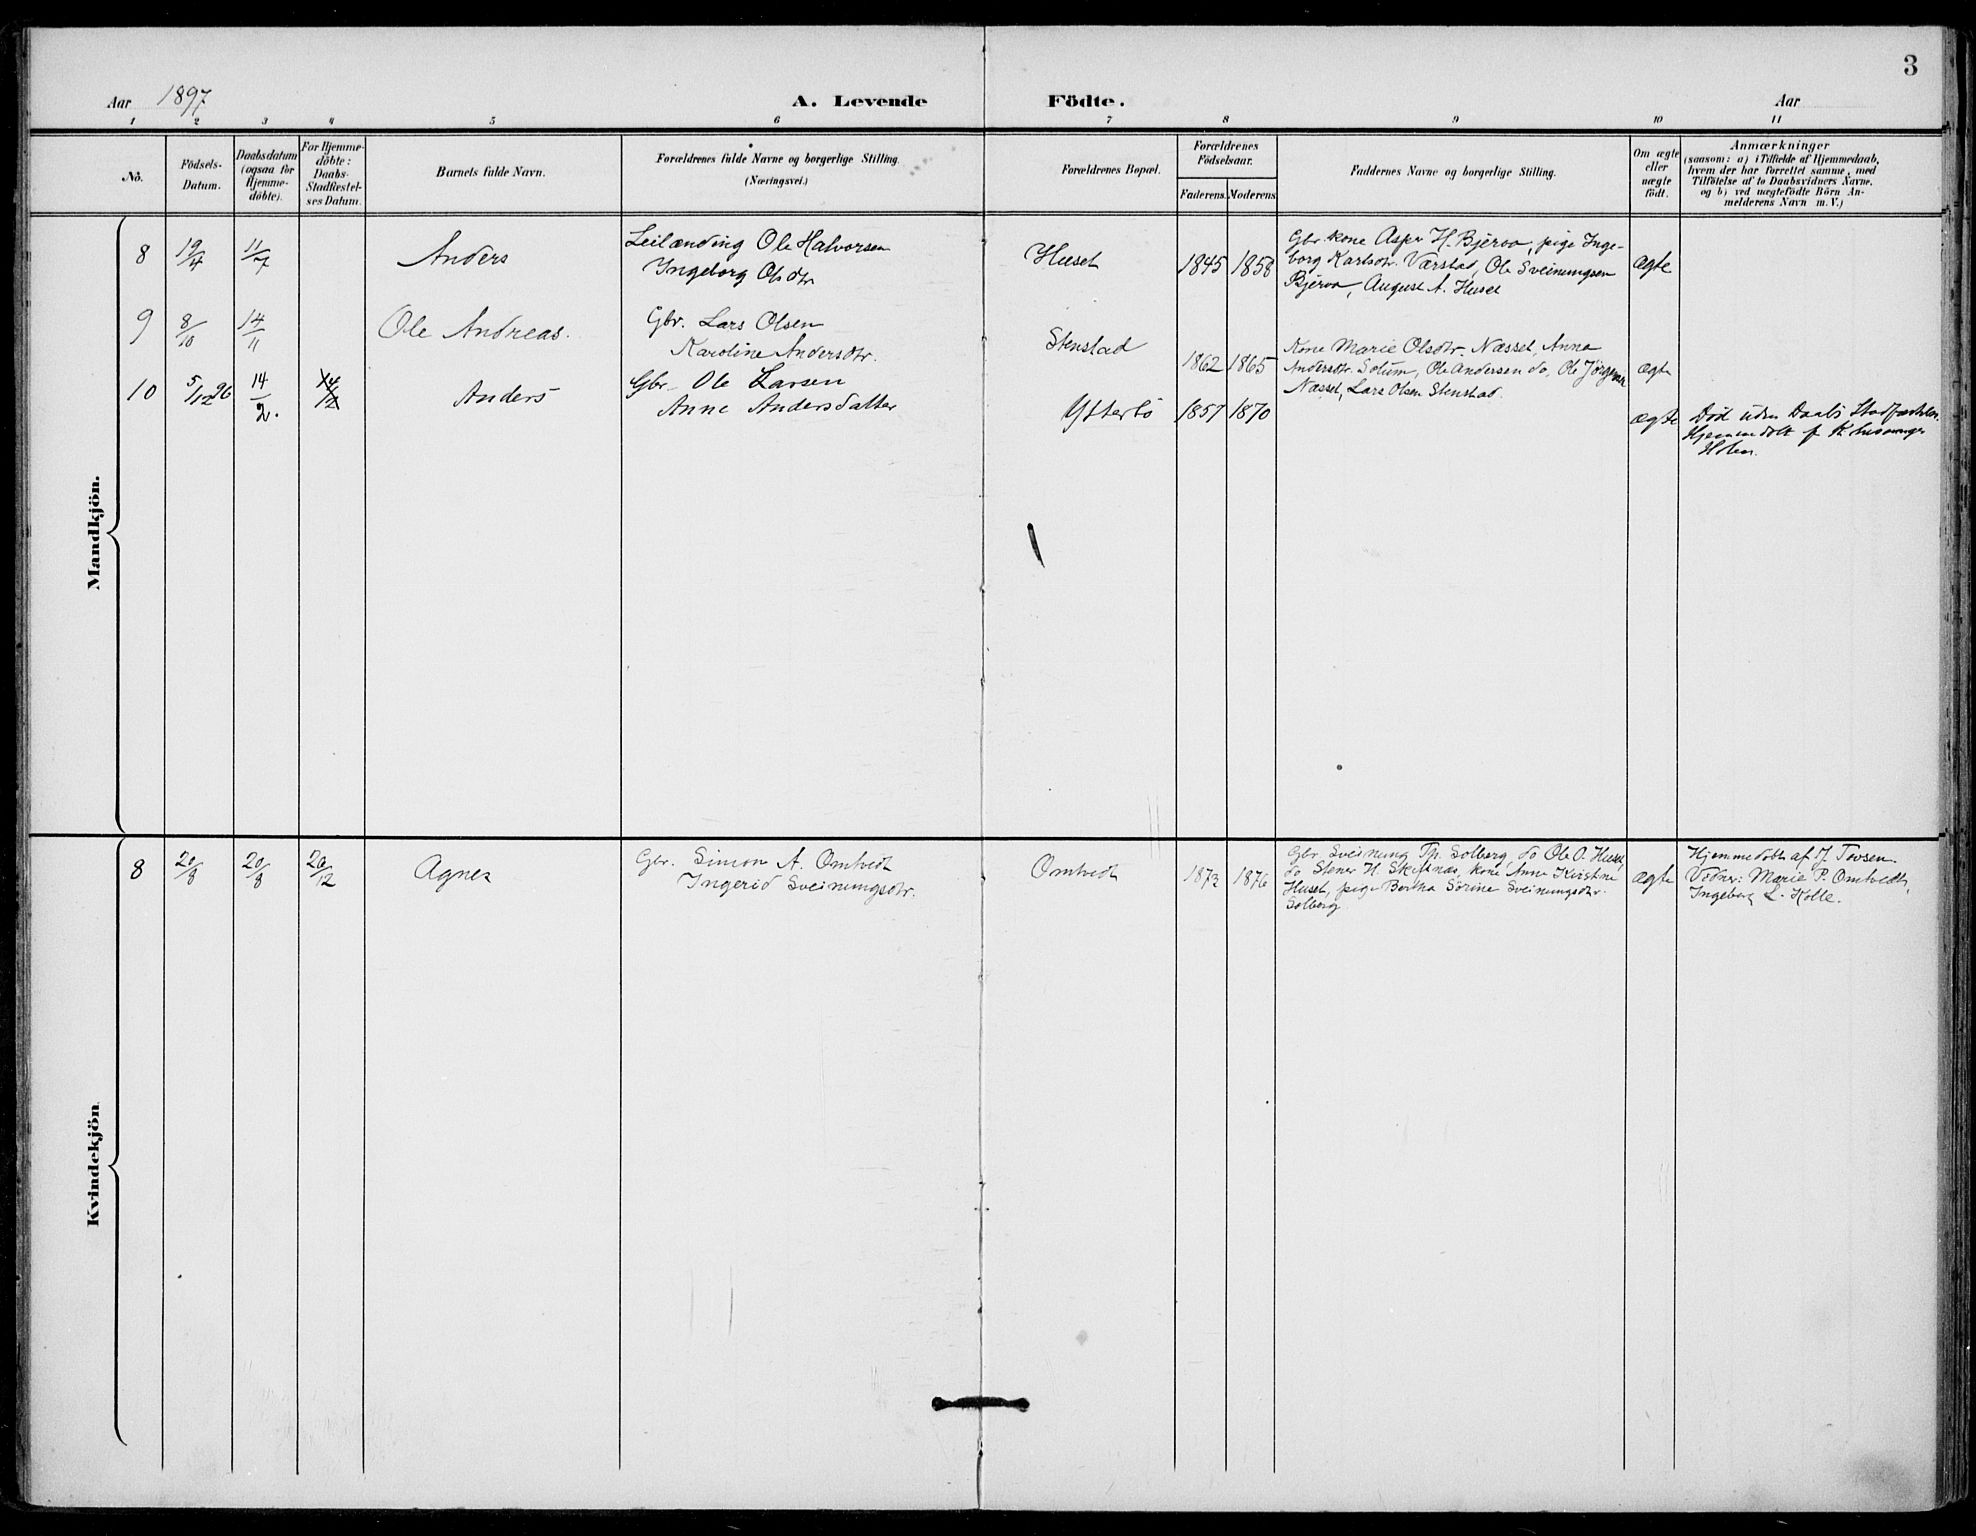 3
Aar 1897 A. Levende Födte. Aar
1 2 3 4 5 6 7 8 9 10 11
No. Födsels-Datum. Daabsdatum (ogsaa for Hjemme-döbte). For Hjemme-döbte: Daabs-Stadfæstel-ses Datum. Barnets fulde Navn. Forældrenes fulde Navne og borgerlige Stilling. (Næringsvei.) Forældrenes Bopæl. Forældrenes Födselsaar. Faderens. Moderens. Faddernes Navne og borgerlige Stilling. Om ægte eller uægte födt. Anmærkninger (saasom: a) i Tilfælde af Hjemmedaab, hvem der har forrettet samme, med Tilföielse af to Daabsvidners Navne, og b) ved uægtefödte Börn An-melderens Navn m. V.)
Mandkjön.
8 19/4 11/7 Anders Leilænding Ole Halvorsen
Ingeborg Olsdtr
Huset 1845 1858 Gbr. kone Asper H. Bjerva, pige Inge-
borg Karlsdtr. Varstad, Ole Sveinungsen
Bjerva, August A. Huset
ægte
9 8/10 14/11 Ole Andreas. Gbr. Lars Olsen
Karoline Andersdtr.
Stenstad 1862 1865 Kone Marie Olsdtr. Næsset, Anna
Andersdtr. Solum, Ole Andersen do, Ole Jörgensen
Næsset, Lars Olsen Stenstad.
ægte
10 5/12 96 14/2. 14/12 Anders Gbr. Ole Larsen
Anne Andersdatter
Yfterbö 1857 1870 ægte Död uden Daabs Stadfæstelse.
Hjemmedöbt
Holen.
Kvindekjön.
8 20/8 20/8 26/12 Agnes Gbr. Simon A. Omtvedt
Ingerid Sveinungsdtr.
Omtvedt 1873 1876 Gbr Sveinung Th. Solberg, do Ole O. Huset,
do Stener H. Skifnæs, kone Anne Kirstine
Huset, pige Bertha Sörine Sveinungsdtr.
Solberg
ægte Hjemmedöbt af J. Tovsen.
Vidner: Marie P. Omtvedt,
Ingeborg L. Kolle.